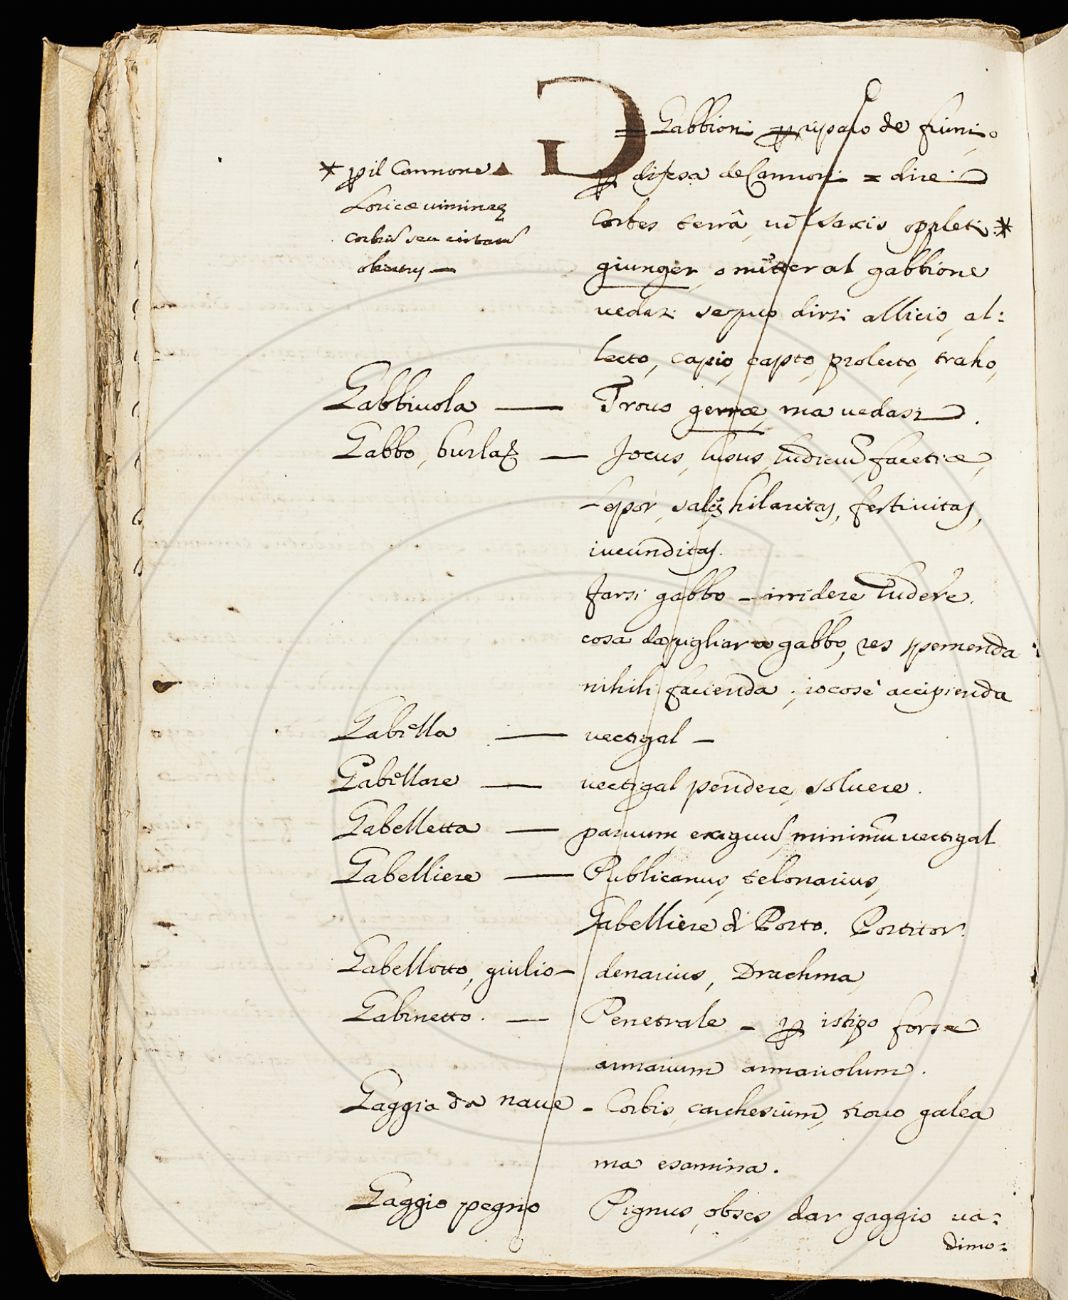 G
Gabbioni p riparo de fiumi,
p difesa de Cannoni = dire
* p il Cannone
Loricæ vimineæ
corbes terrâ, vel saxis oppleti *
giunger, o metter al gabbione
vedasi se può dirsi allicio, al:
lecto, capio, capto, prolecto, traho,
Gabbiuola — Trovo gerræ, ma vedasi.
Gabbo, burla — Jocus, lusus, ludicrum, facetiæ,
lepor, sales, hilaritas, festivitas,
iucunditas.
Farsi gabbo — irridere, ludere.
cosa da pigliar a gabbo, res spernenda
nihili facienda, iocosè accipienda
Gabella — vectigal —
Gabellare — vectigal pendere, solvere.
Gabelletta — parvum exiguum minimum vectigal
Gabelliere — Publicanus, telonarius,
Gabelliere di Porto. Portitor.
Gabellotto, giulio — denarius, Drachma
Gabinetto. — Penetrale — p istipo forse
armarium armariolum.
Gaggia da nave — Corbis, carchesium, trovo galea
ma esamina.
Gaggio pegno Pignus, obses, dar gaggio va:
dimo: